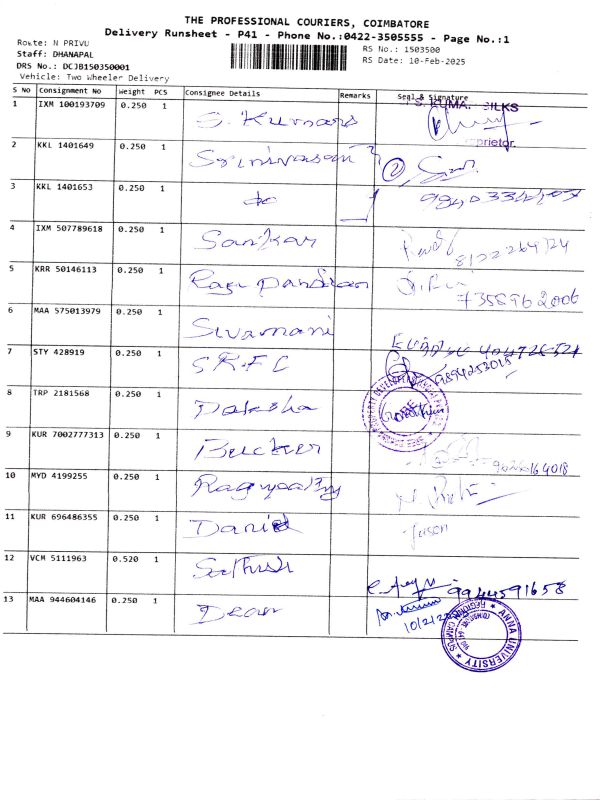 THE PROFESSIONAL COURIERS, COIMBATORE
Delivery Runsheet - P41 - Phone No.:0422-3505555 - Page No.:1
Route: N PRIVU
RS No.: 1503500
Staff: DHANAPAL
RS Date: 10-Feb-2025
DRS No.: DCJB150350001
Vehicle: Two Wheeler Delivery
S No Consignment No Weight PCS Consignee Details Remarks Seal & Signature
1 IXM 100193709 0.250 1 S. Kumars S. KUMA SILKS
prietor.
2 KKL 1401649 0.250 1 Srinivasan 2
3 KKL 1401653 0.250 1 do
4 IXM 507789618 0.250 1 Sankar 8122264724
5 KRR 50146113 0.250 1 Ragu Pandian 7358962006
6 MAA 575013979 0.250 1 Sivamani
7 STY 428919 0.250 1 S.K.F.C 9894253018
8 TRP 2181568 0.250 1 Daksha
9 KUR 7002777313 0.250 1
10 MYD 4199255 0.250 1
11 KUR 696486355 0.250 1 Daniel Jason
12 VCM 5111963 0.520 1 Sathish 9944591658
13 MAA 944604146 0.250 1 Dean
ANNA UNIVERSITY
REGIONAL CAMPUS